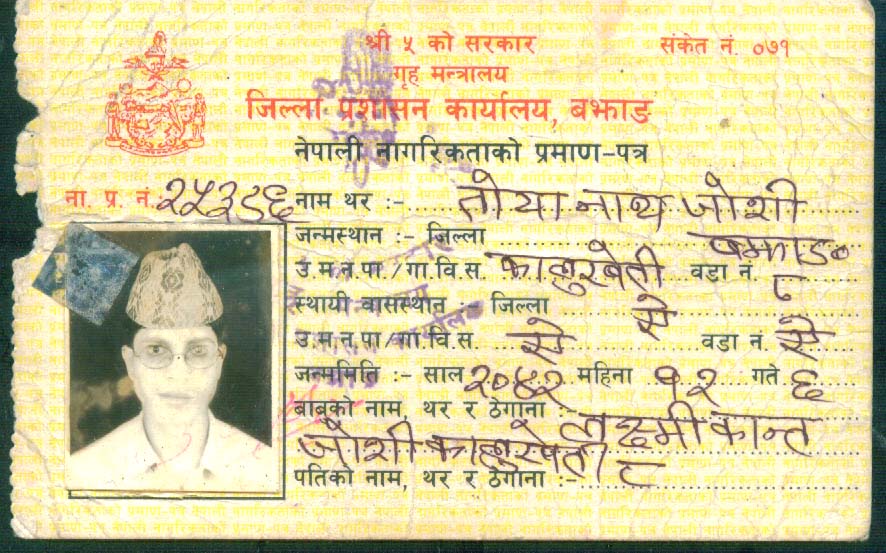 श्री ५ को सरकार
संकेत नं. ०७१
गृह मन्त्रालय
जिल्ला प्रशासन कार्यालय, बझाङ
नेपाली नागरिकताको प्रमाण-पत्र
ना. प्र. नं. २५३८६ नाम थर :- तोया नाथ जोशी
जन्मस्थान :- जिल्ला बझाङ
उ.म.न.पा./गा.वि.स. कालुखेती वडा नं. ८
स्थायी वासस्थान :- जिल्ला ऐ
उ.म.न.पा/गा.वि.स. ऐ वडा नं. ऐ
जन्ममिति :- साल २०४२ महिना १२ गते ६
बाबुको नाम, थर र ठेगाना :- लक्ष्मी कान्त
जोशी कालुखेती ८
पतिको नाम, थर र ठेगाना :-